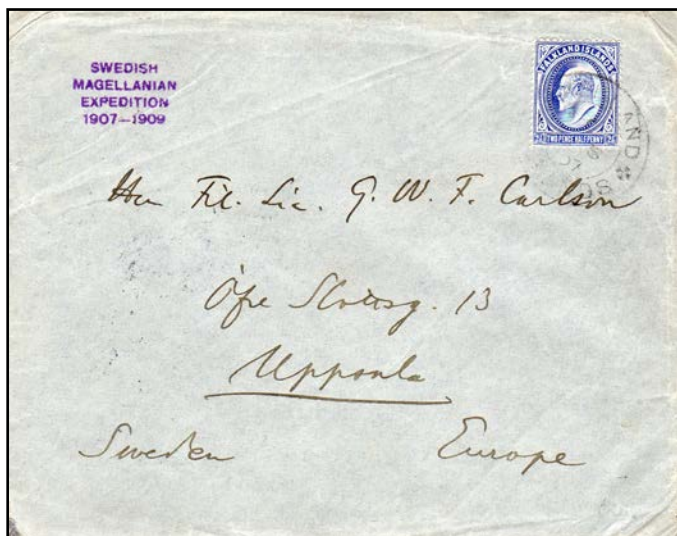 SWEDISH
MAGELLANIAN
EXPEDITION
1907–1909
FALKLAND ISLANDS
TWO PENCE HALFPENNY
Herr Fil. Lic. G. W. F. Carlson
Öfre Slottsg. 13
Uppsala
Sweden Europe